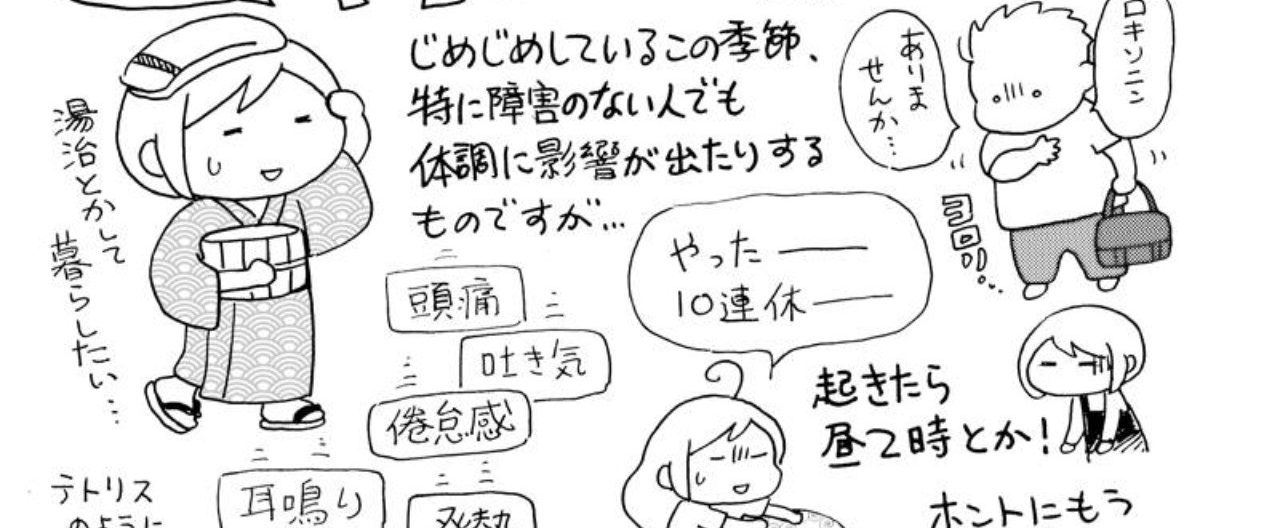 じめじめしているこの季節、
特に障害のない人でも
体調に影響が出たりする
ものですが…
ロキソニン
ありま
せんか…
ヨロ…
湯治とかして
暮らしたい…
頭痛
吐き気
倦怠感
耳鳴り
発熱
テトリス
のように
やった――
10連休――
起きたら
昼2時とか!
ホントにもう